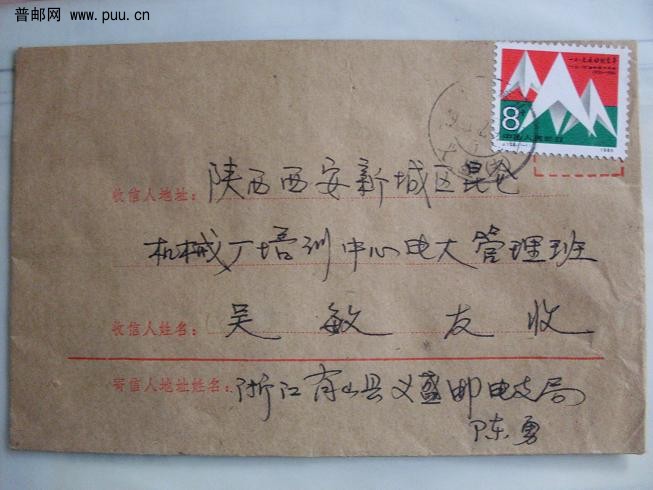 普邮网 www.puu.cn
8分
中国人民邮政
1985
收信人地址: 陕西西安新城区昆仑
机械厂培训中心电大管理班
收信人姓名: 吴敏友收
寄信人地址姓名: 浙江萧山县义盛邮电支局
陈勇